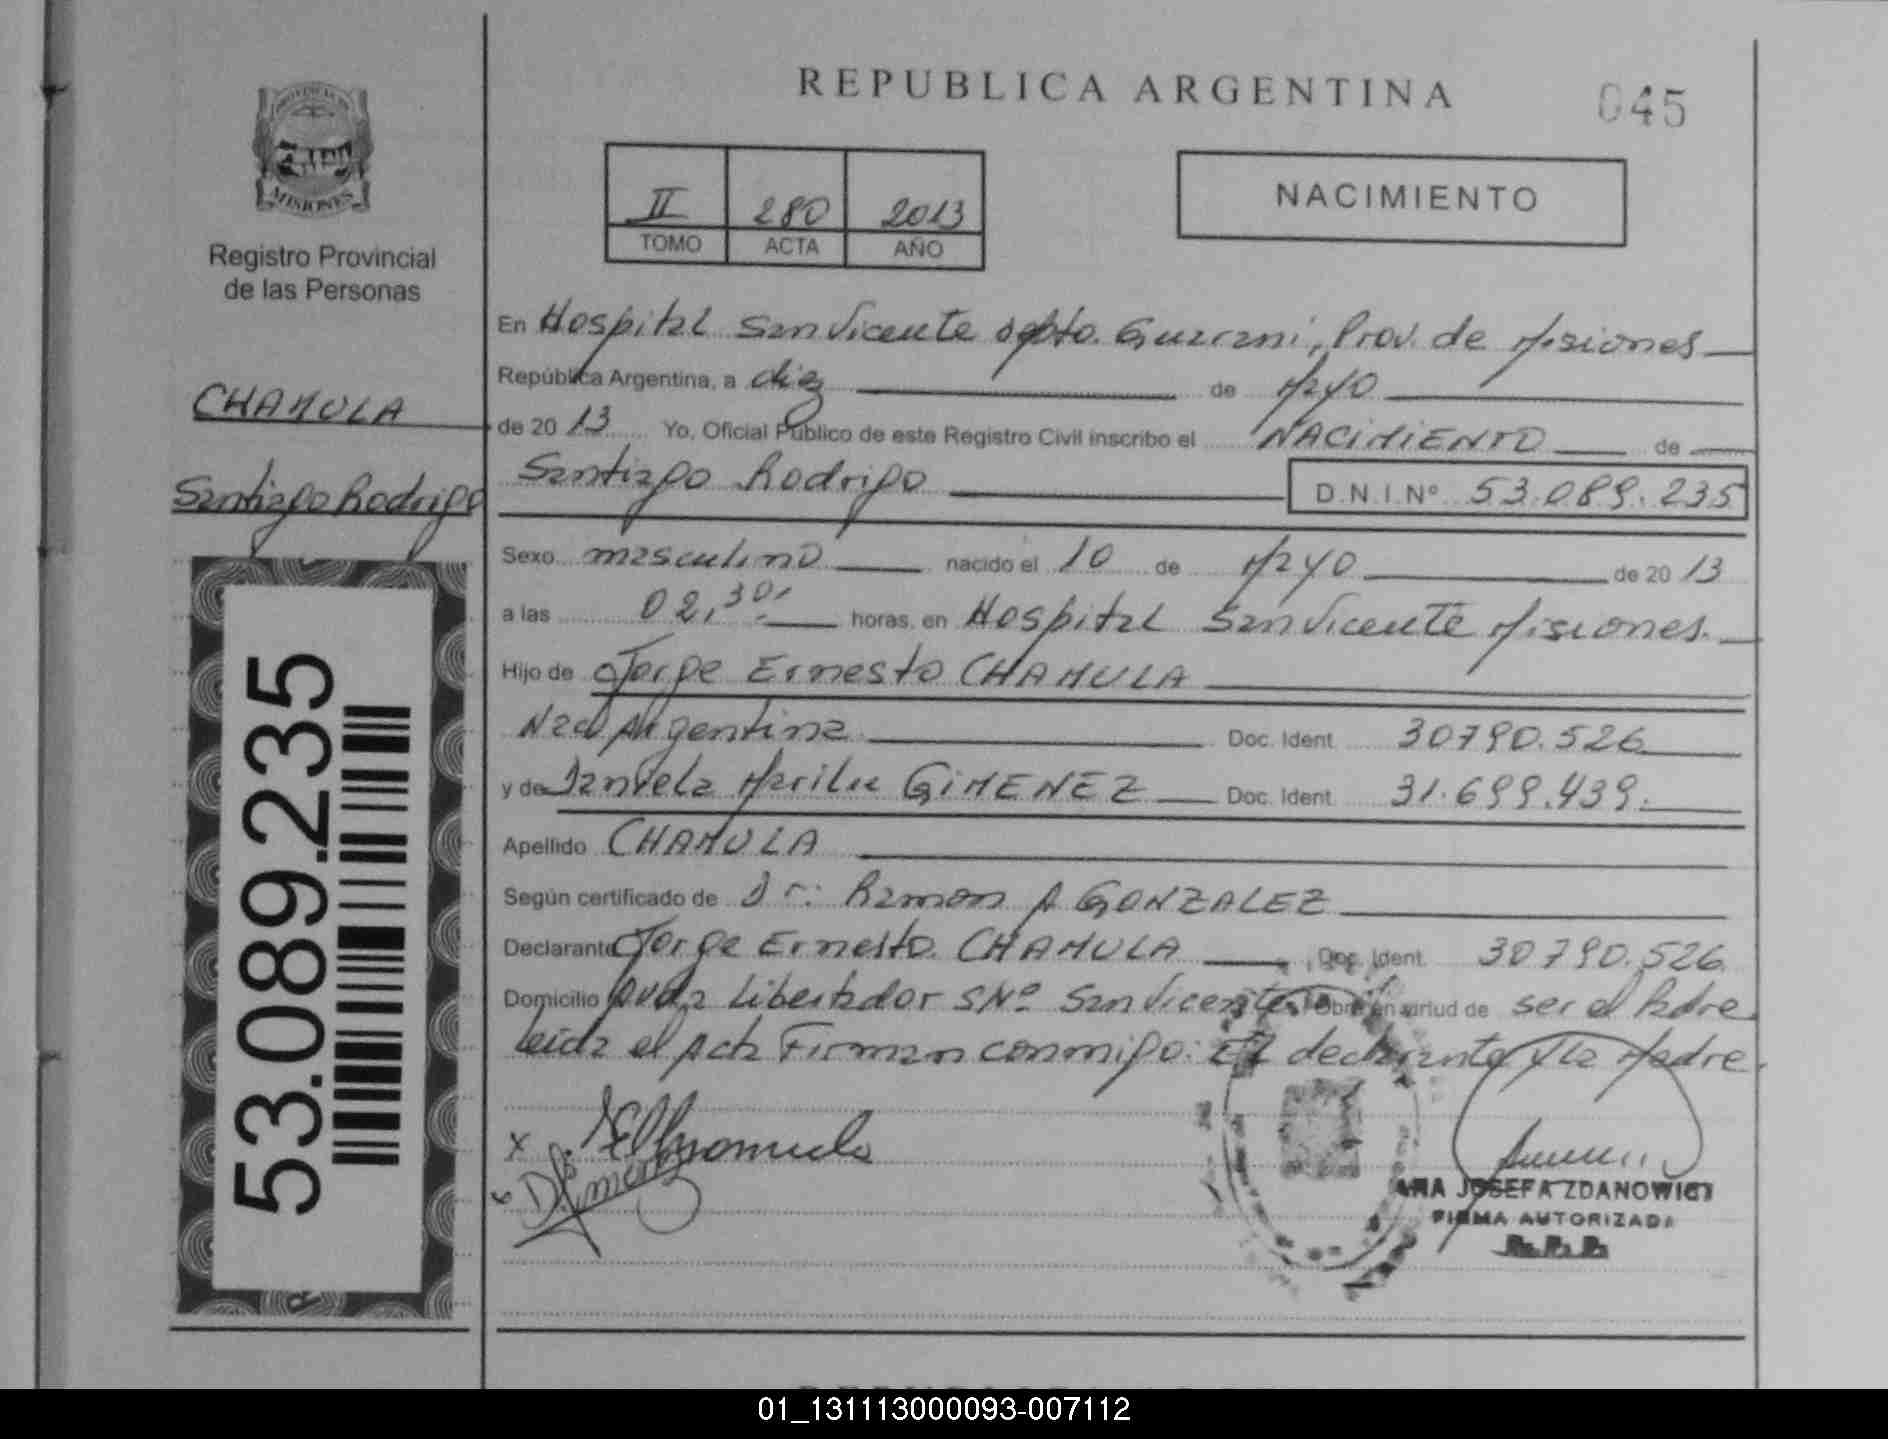 PROVINCIA DE
MISIONES
Registro Provincial
de las Personas
CHAMULA
Santiago Rodrigo
53.089.235
REPUBLICA ARGENTINA
045
II 280 2013
TOMO ACTA AÑO
NACIMIENTO
En Hospital San Vicente Dpto. Guarani, Prov. de Misiones
República Argentina, a diez de Mayo
de 2013 Yo, Oficial Público de este Registro Civil inscribo el NACIMIENTO de
Santiago Rodrigo D.N.I. Nº 53.089.235
Sexo masculino nacido el 10 de Mayo de 2013
a las 02,30, horas, en Hospital San Vicente Misiones.
Hijo de Jorge Ernesto CHAMULA
Nac Argentina Doc. Ident. 30790.526
y de Daniela Marilu GIMENEZ Doc. Ident. 31.699.439.
Apellido CHAMULA
Según certificado de Dr: Ramon A GONZALEZ
Declarante Jorge Ernesto CHAMULA Doc. Ident. 30790.526
Domicilio Avda Libertador SNº San Vicente Obra en virtud de ser el Padre
Leida el Acta Firman conmigo: El declarante y la Madre.
x
JOSEFA ZDANOWICZ
FIRMA AUTORIZADA
R.P.P.
01_131113000093-007112